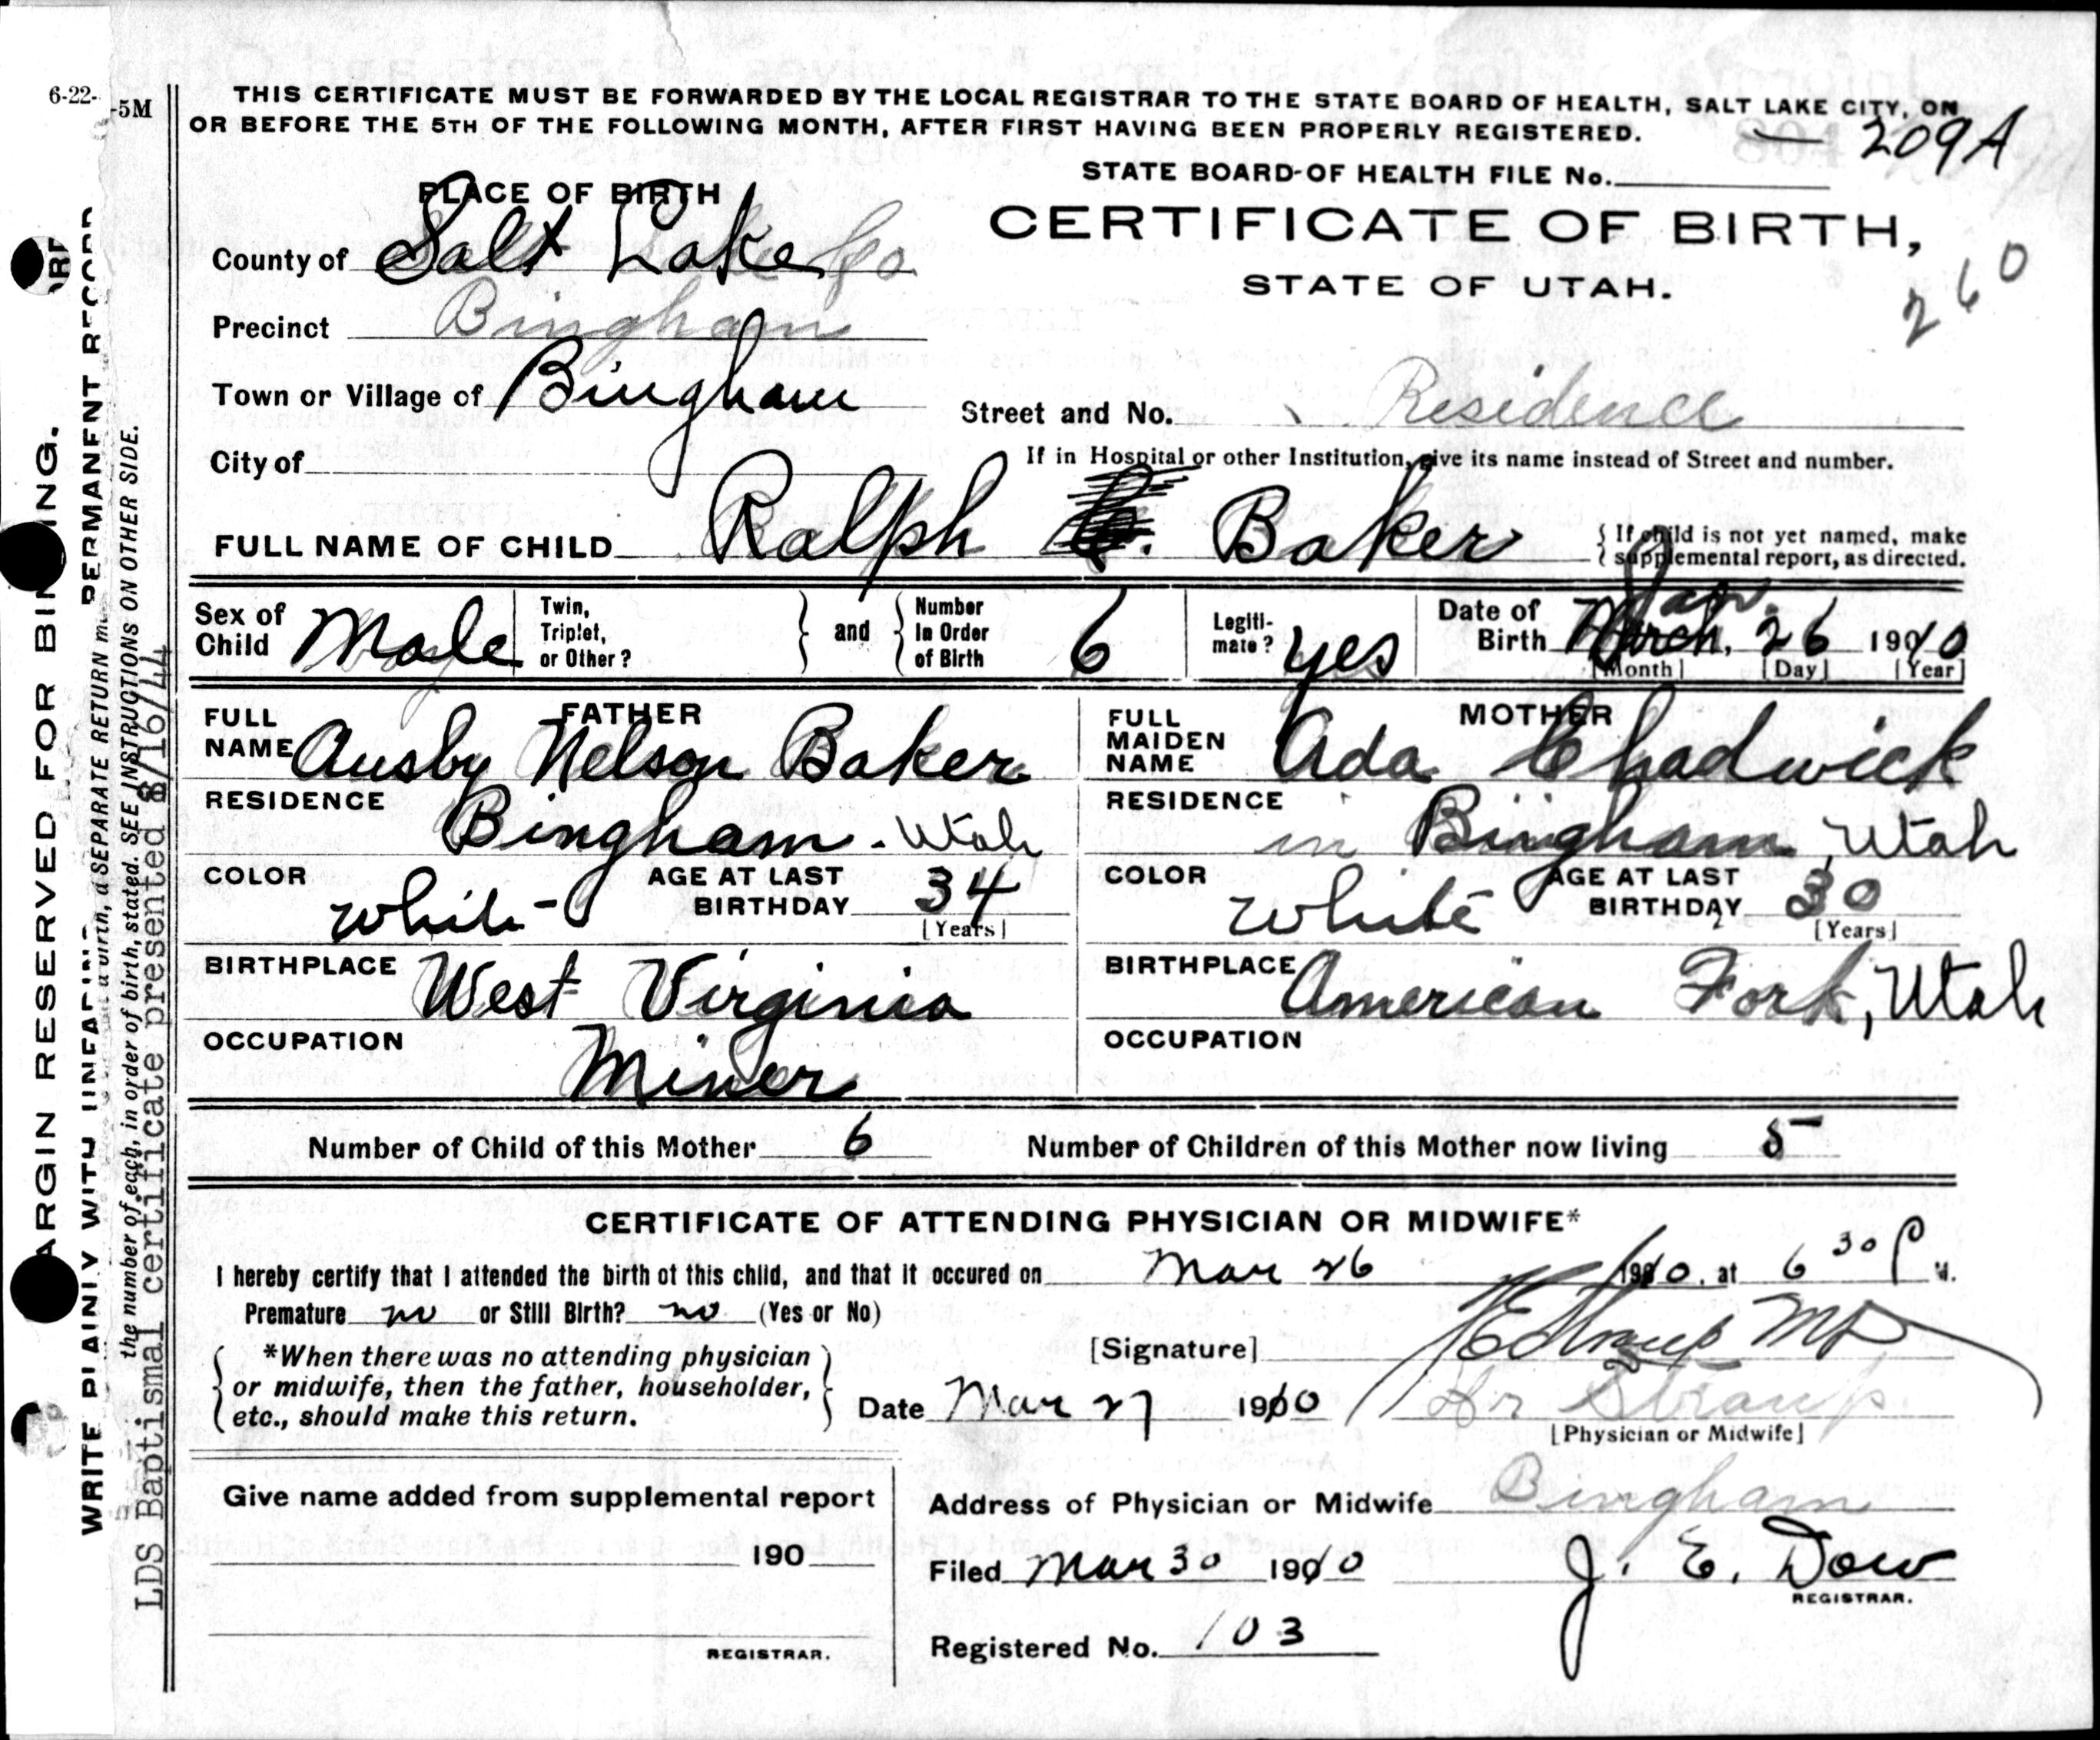 6-22- -5M
THIS CERTIFICATE MUST BE FORWARDED BY THE LOCAL REGISTRAR TO THE STATE BOARD OF HEALTH, SALT LAKE CITY, ON
OR BEFORE THE 5TH OF THE FOLLOWING MONTH, AFTER FIRST HAVING BEEN PROPERLY REGISTERED.
209A
STATE BOARD OF HEALTH FILE No.
PLACE OF BIRTH
CERTIFICATE OF BIRTH,
STATE OF UTAH.
260
County of Salt Lake Co
Precinct Bingham
Town or Village of Bingham
Street and No. Residence
City of
If in Hospital or other Institution, give its name instead of Street and number.
FULL NAME OF CHILD Ralph Baker
If child is not yet named, make
supplemental report, as directed.
Sex of Child Male
Twin, Triplet, or Other?
and
Number In Order of Birth 6
Legiti-mate? yes
Date of Birth March, Jan. 26 1910
[Month] [Day] [Year]
FATHER
FULL NAME Ausby Nelson Baker
RESIDENCE
Bingham - Utah
COLOR white
AGE AT LAST BIRTHDAY 34
[Years]
BIRTHPLACE West Virginia
OCCUPATION
Miner
MOTHER
FULL MAIDEN NAME Ada Chadwick
RESIDENCE
in Bingham, Utah
COLOR White
AGE AT LAST BIRTHDAY 30
[Years]
BIRTHPLACE American Fork, Utah
OCCUPATION
Number of Child of this Mother 6
Number of Children of this Mother now living 5
CERTIFICATE OF ATTENDING PHYSICIAN OR MIDWIFE*
I hereby certify that I attended the birth of this child, and that it occured on Mar 26 1910, at 6 30 P M.
Premature no or Still Birth? no (Yes or No)
*When there was no attending physician
or midwife, then the father, householder,
etc., should make this return.
[Signature] Straup MD
Dr Straup
[Physician or Midwife]
Date Mar 27 1910
Give name added from supplemental report
190
REGISTRAR.
Address of Physician or Midwife Bingham
Filed Mar 30 1910 J. E. Dow
REGISTRAR.
Registered No. 103
ARGIN RESERVED FOR BINDING.
WRITE PLAINLY WITH UNFADING PERMANENT RECORD
a birth, a SEPARATE RETURN
the number of each, in order of birth, stated. SEE INSTRUCTIONS ON OTHER SIDE.
LDS Baptismal certificate presented 8/16/44